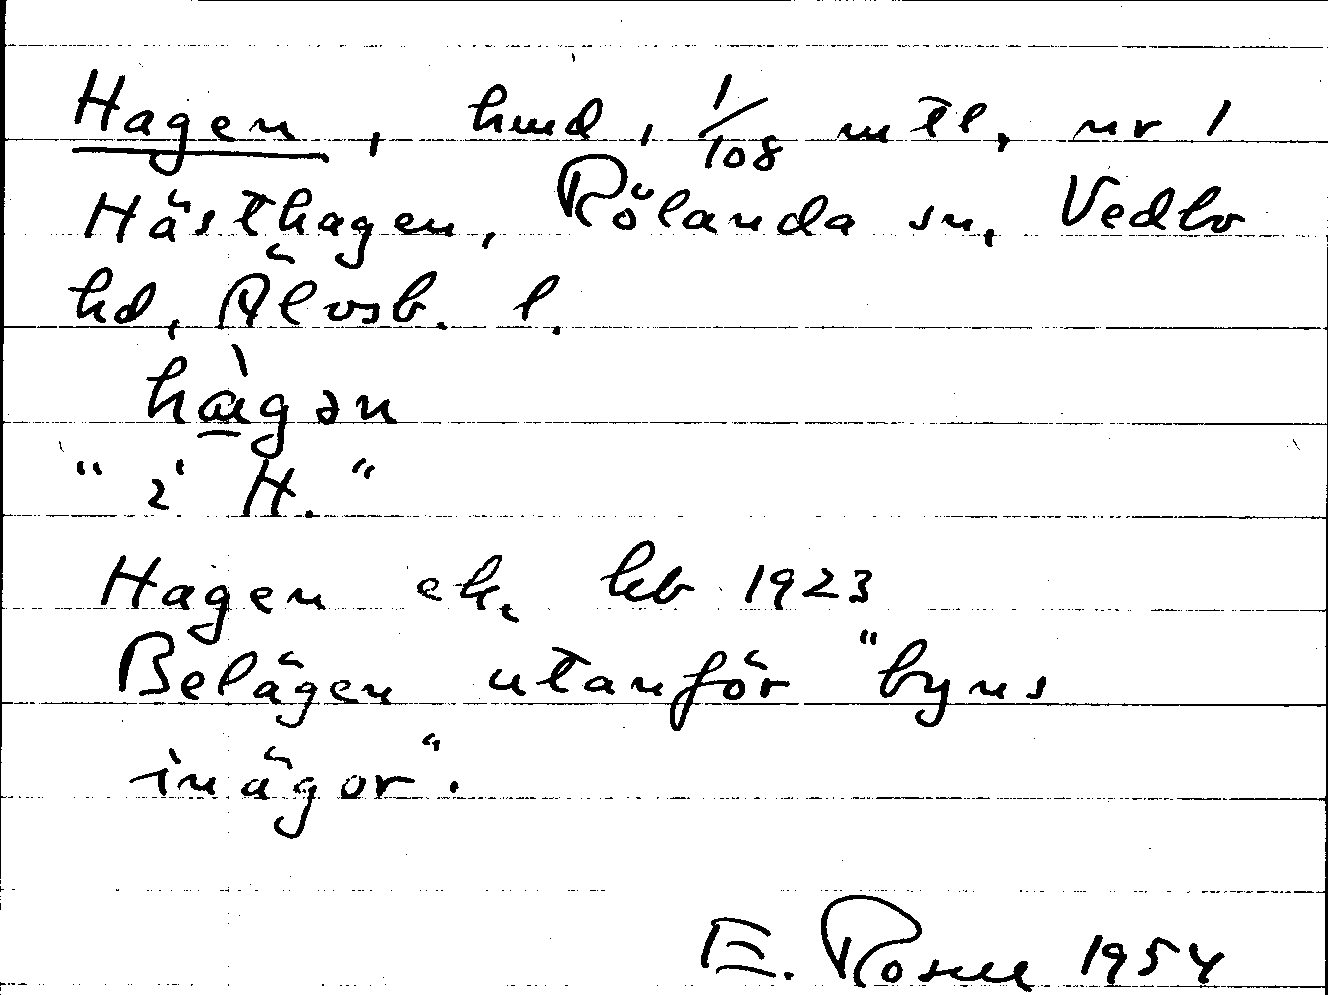 Hagen, hmd, 1/108 mtl, nr 1
Hästhagen, Rölanda sn, Vedbo
hd, Älvsb. l.
hàgən
"i H."
Hagen ek, kb 1923
Belägen utanför "byns
inägor".
E. Rosell 1954